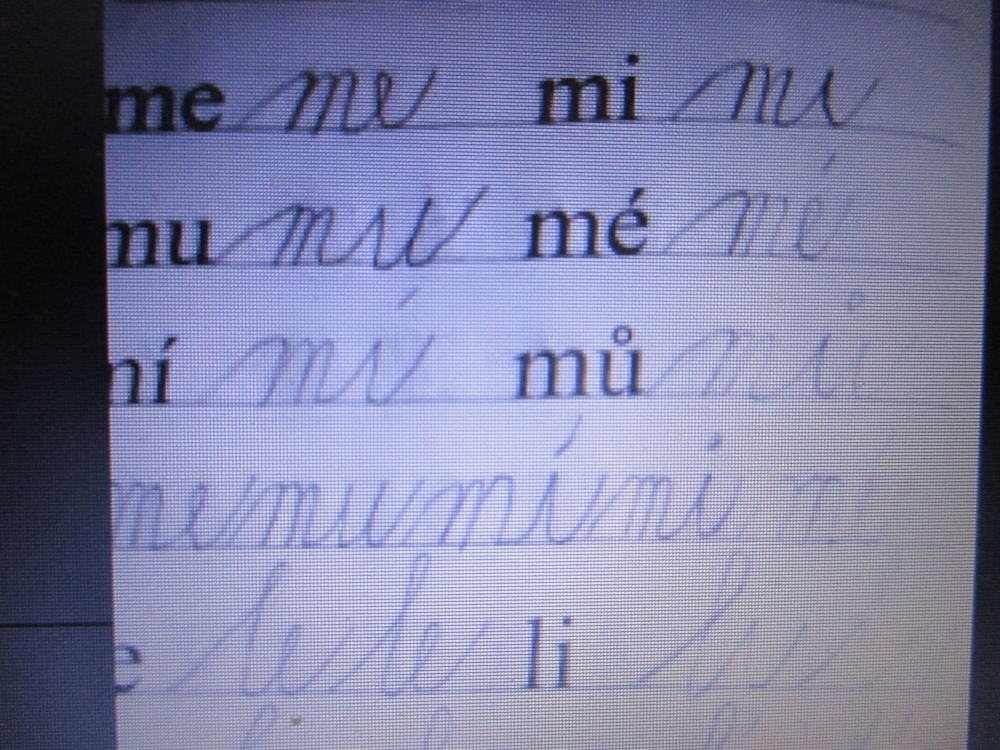 me me mi mi
mu mu mé mé
ní mí mů
me mu mí mi
le le li